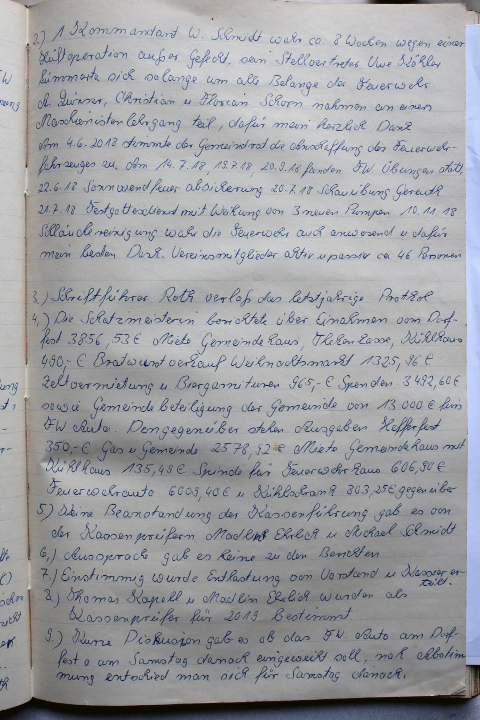 2.) 1 Kommandant W. Schmidt wahr ca. 8 Wochen wegen einer
Hüftoperation außer Gefecht, sein Stellvertreter Uwe Köhler
kümmerte sich solange um alle Belange der Feuerwehr
Christian u Florian Schorn nahmen an einen
Maschienistenlehrgang teil, dafür mein herzlich Dank
Am 4.6.2018 stimmte der Gemeindrat die Anschaffung des Feuerwehr-
fahrzeuges zu. Am 14.7.18, 19.7.18, 20.9.18 fanden FW Übungen statt
22.6.18 Sonnwendfeuer absicherung 20.7.18 Schauübung Gereuth
21.7.18 Festgottesdienst mit Weihung von 3 neuen Pumpen 10.11.18
Schläuchereinigung wahr die Feuerwehr auch anwesend u dafür
mein besten Dank. Vereinsmitglieder aktiv u passiv ca 46 Personen
3.) Schriftführer Roth verlaß das letztjährige Protkol
4.) Die Schatzmeisterin berichtete über Einahmen vom Dorf-
fest 3856,53 € Miete Gemeindehaus, Theken Kasse, Kühlhaus
490,- € Bratwurstverkauf Weihnachtsmarkt 1325,96 €
Zeltvermietung u Biergarnituren 965,- € Spenden 3492,60 €
sowie Gemeindebeteiligung der Gemeinde von 13 000 € fürs
FW Auto. Demgegenüber stehen Ausgaben Helferfest
350,- € Gas u Gemeinde 2578,92 € Miete Gemeindehaus mit
Kühlhaus 135,49 € Spinde für Feuerwehrhaus 606,90 €
Feuerwehrauto 6009,40 € u Kühlschrank 303,25 € gegenüber
5.) Keine Beanstandung der Kassenführung gab es von
der Kassenpreifern Madlin Ehrlich u Michael Schmidt
6.) Aussprache gab es keine zu den Berichten
7.) Einstimmig wurde Entlastung von Vorstand u Kassier er-
teilt.
8.) Thomas Kapell u Madlin Ehrlich wurden als
Kassenpreifer für 2019 bestimmt
9.) Kurze Diskusion gab es ob das FW Auto am Dorf-
fest o am Samstag danach eingeweiht soll, nach Abstim
mung entschied man sich für Samstag danach.